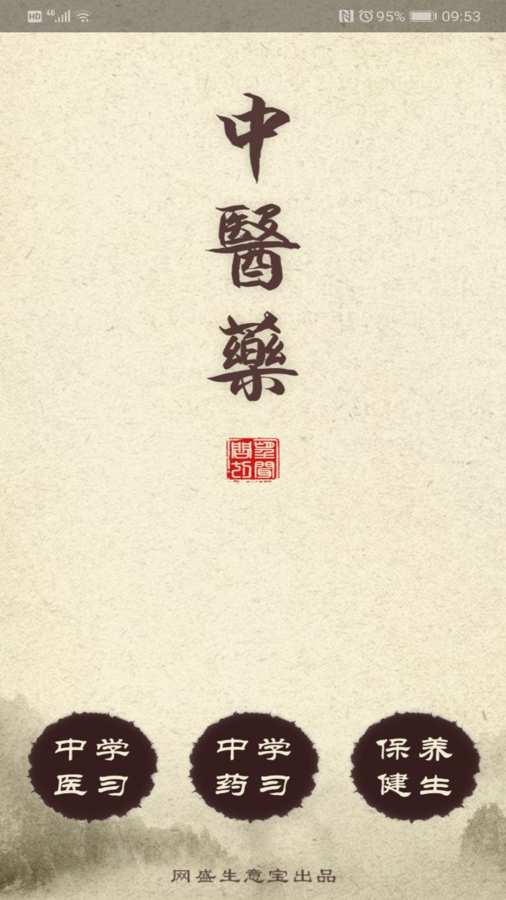 HD 4G 95% 09:53
中
醫
藥
望聞
問切
中学
医习
中学
药习
保养
健生
网盛生意宝出品